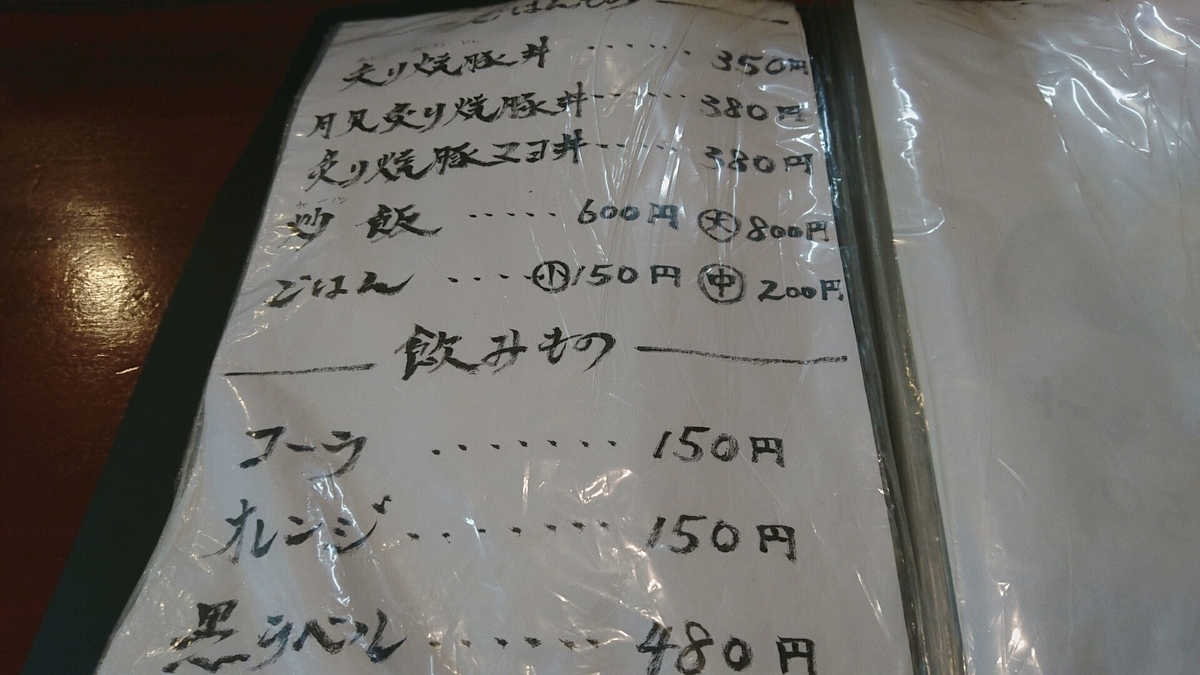 ごはんもの
炙り焼豚丼 ‥‥‥ 350円
月見炙り焼豚丼 ‥‥‥ 380円
炙り焼豚マヨ丼 ‥‥‥ 380円
炒飯 ‥‥‥ 600円 ㊛大 800円
ごはん ‥‥‥ ㊤小 150円 ㊥ 200円
飲みもの
コーラ ‥‥‥ 150円
オレンジ ‥‥‥ 150円
黒ラベル ‥‥‥ 480円